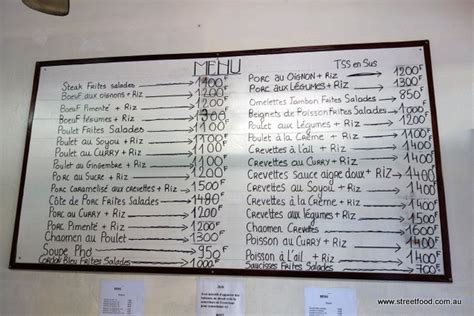 MENU
TSS en Sus
Steak Frites salades 1400F
Boeuf aux oignons + Riz 1200
Boeuf Pimenté + Riz 1200
Boeuf légumes + Riz 1300
Poulet Frites Salades 1100
Poulet au Soyou + Riz 1100
Poulet au Curry + Riz 1100
Poulet au Gingembre + Riz 1100
Porc au Sucre + Riz 1200
Porc Caramelisé aux crevettes + Riz 1500
Côte de Porc Frites Salades 1480
Porc au Curry + Riz 1200
Porc Pimenté + Riz 1200
Chaomen au Poulet 1300
Soupe Pho 950
Cordon Bleu Frites Salades 1000
Porc au Oignon + Riz 1200F
Porc aux Légumes + Riz 1300F
Omelettes Jambon Frites Salades 850
Beignets de Poisson Frites Salades 1000
Poulet aux légumes + Riz 1200
Poulet à la Crème + Riz 1200
Crevettes à l'ail + Riz 1400
Crevettes au Curry + Riz 1400
Crevettes Sauce aigre doux + Riz 1400
Crevettes au Soyou + Riz 1400
Crevettes à la crème + Riz 1400
Crevettes aux légumes + Riz 1400
Chaomen Crevettes 1600
Poisson au Curry + Riz 1400
Poisson à l'Ail + Riz 1400
Saucisses Frites Salades
MENU
MENU
www.streetfood.com.au